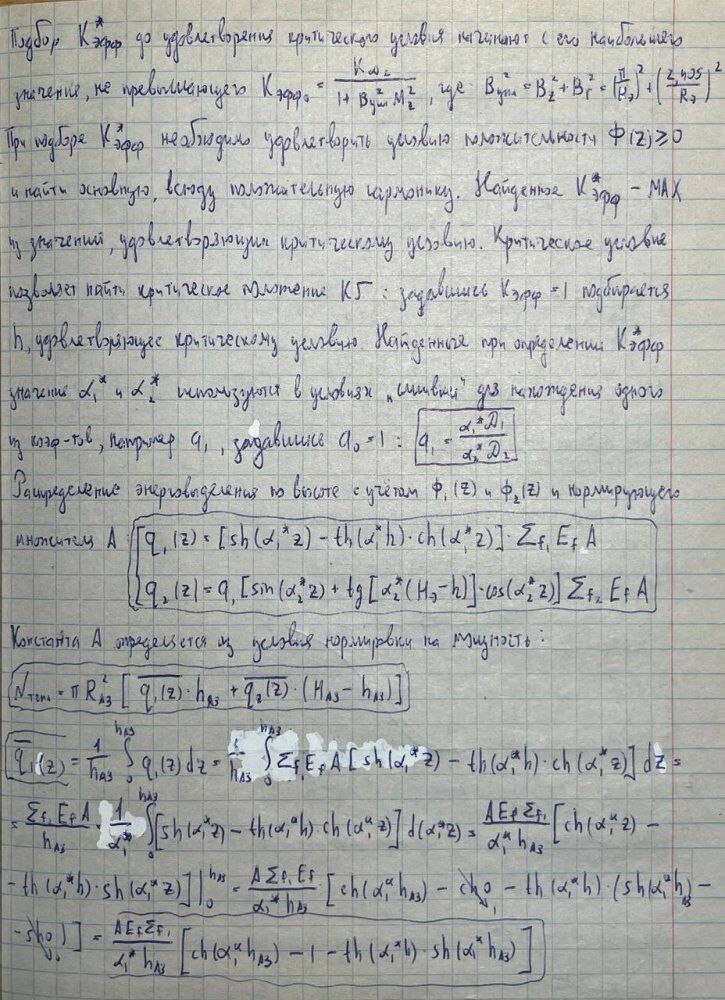 Подбор K*эфф до удовлетворения критического условия начинают с его наибольшего
значения, не превышающего Kэфф₀ = K∞₂ / (1 + B²упл M²₂), где B²упл = B²z + B²r = (π/Hэ)² + (2,405/Rэ)²
При подборе K*эфф необходимо удовлетворить условию положительности Φ(z) ≥ 0
и найти основную, всюду положительную гармонику. Найденное K*эфф – MAX
из значений, удовлетворяющих критическому условию. Критическое условие
позволяет найти критическое положение КГ: задавшись Kэфф = 1 подбирается
h, удовлетворяющее критическому условию. Найденные при определении K*эфф
значение α₁* и α₂* используются в условиях „сшивки" для нахождения одного
из коэф-тов, например q₁, задавшись a₀ = 1: q₁ = α₁* D₁ / α₂* D₂
Распределение энерговыделения по высоте с учётом Φ₁(z) и Φ₂(z) и нормирующего
множителя A: q₁(z) = [sh(α₁*z) – th(α₁*h)·ch(α₁*z)]·Σf₁ Ef A
q₂(z) = q₁[sin(α₂*z) + tg[α₂*(Hэ–h)]·cos(α₂*z)] Σf₂ Ef A
Константа A определяется из условия нормировки на мощность:
Nтепл = π R²АЗ [q̅₁(z)·hАЗ + q̅₂(z)·(HАЗ – hАЗ)]
q̅₁(z) = 1/hАЗ ∫₀^hАЗ q₁(z) dz = 1/hАЗ ∫₀^hАЗ Σf₁ Ef A [sh(α₁*z) – th(α₁*h)·ch(α₁*z)] dz =
= Σf₁ Ef A / hАЗ · 1/α₁* ∫₀^hАЗ [sh(α₁*z) – th(α₁*h)·ch(α₁*z)] d(α₁*z) = A Ef Σf₁ / α₁* hАЗ [ch(α₁*z) –
– th(α₁*h)·sh(α₁*z)] |₀^hАЗ = A Σf₁ Ef / α₁* hАЗ · [ch(α₁*hАЗ) – ch0 – th(α₁*h)·(sh(α₁*hАЗ) –
– sh0)] = A Ef Σf₁ / α₁* hАЗ [ch(α₁*hАЗ) – 1 – th(α₁*h)·sh(α₁*hАЗ)]